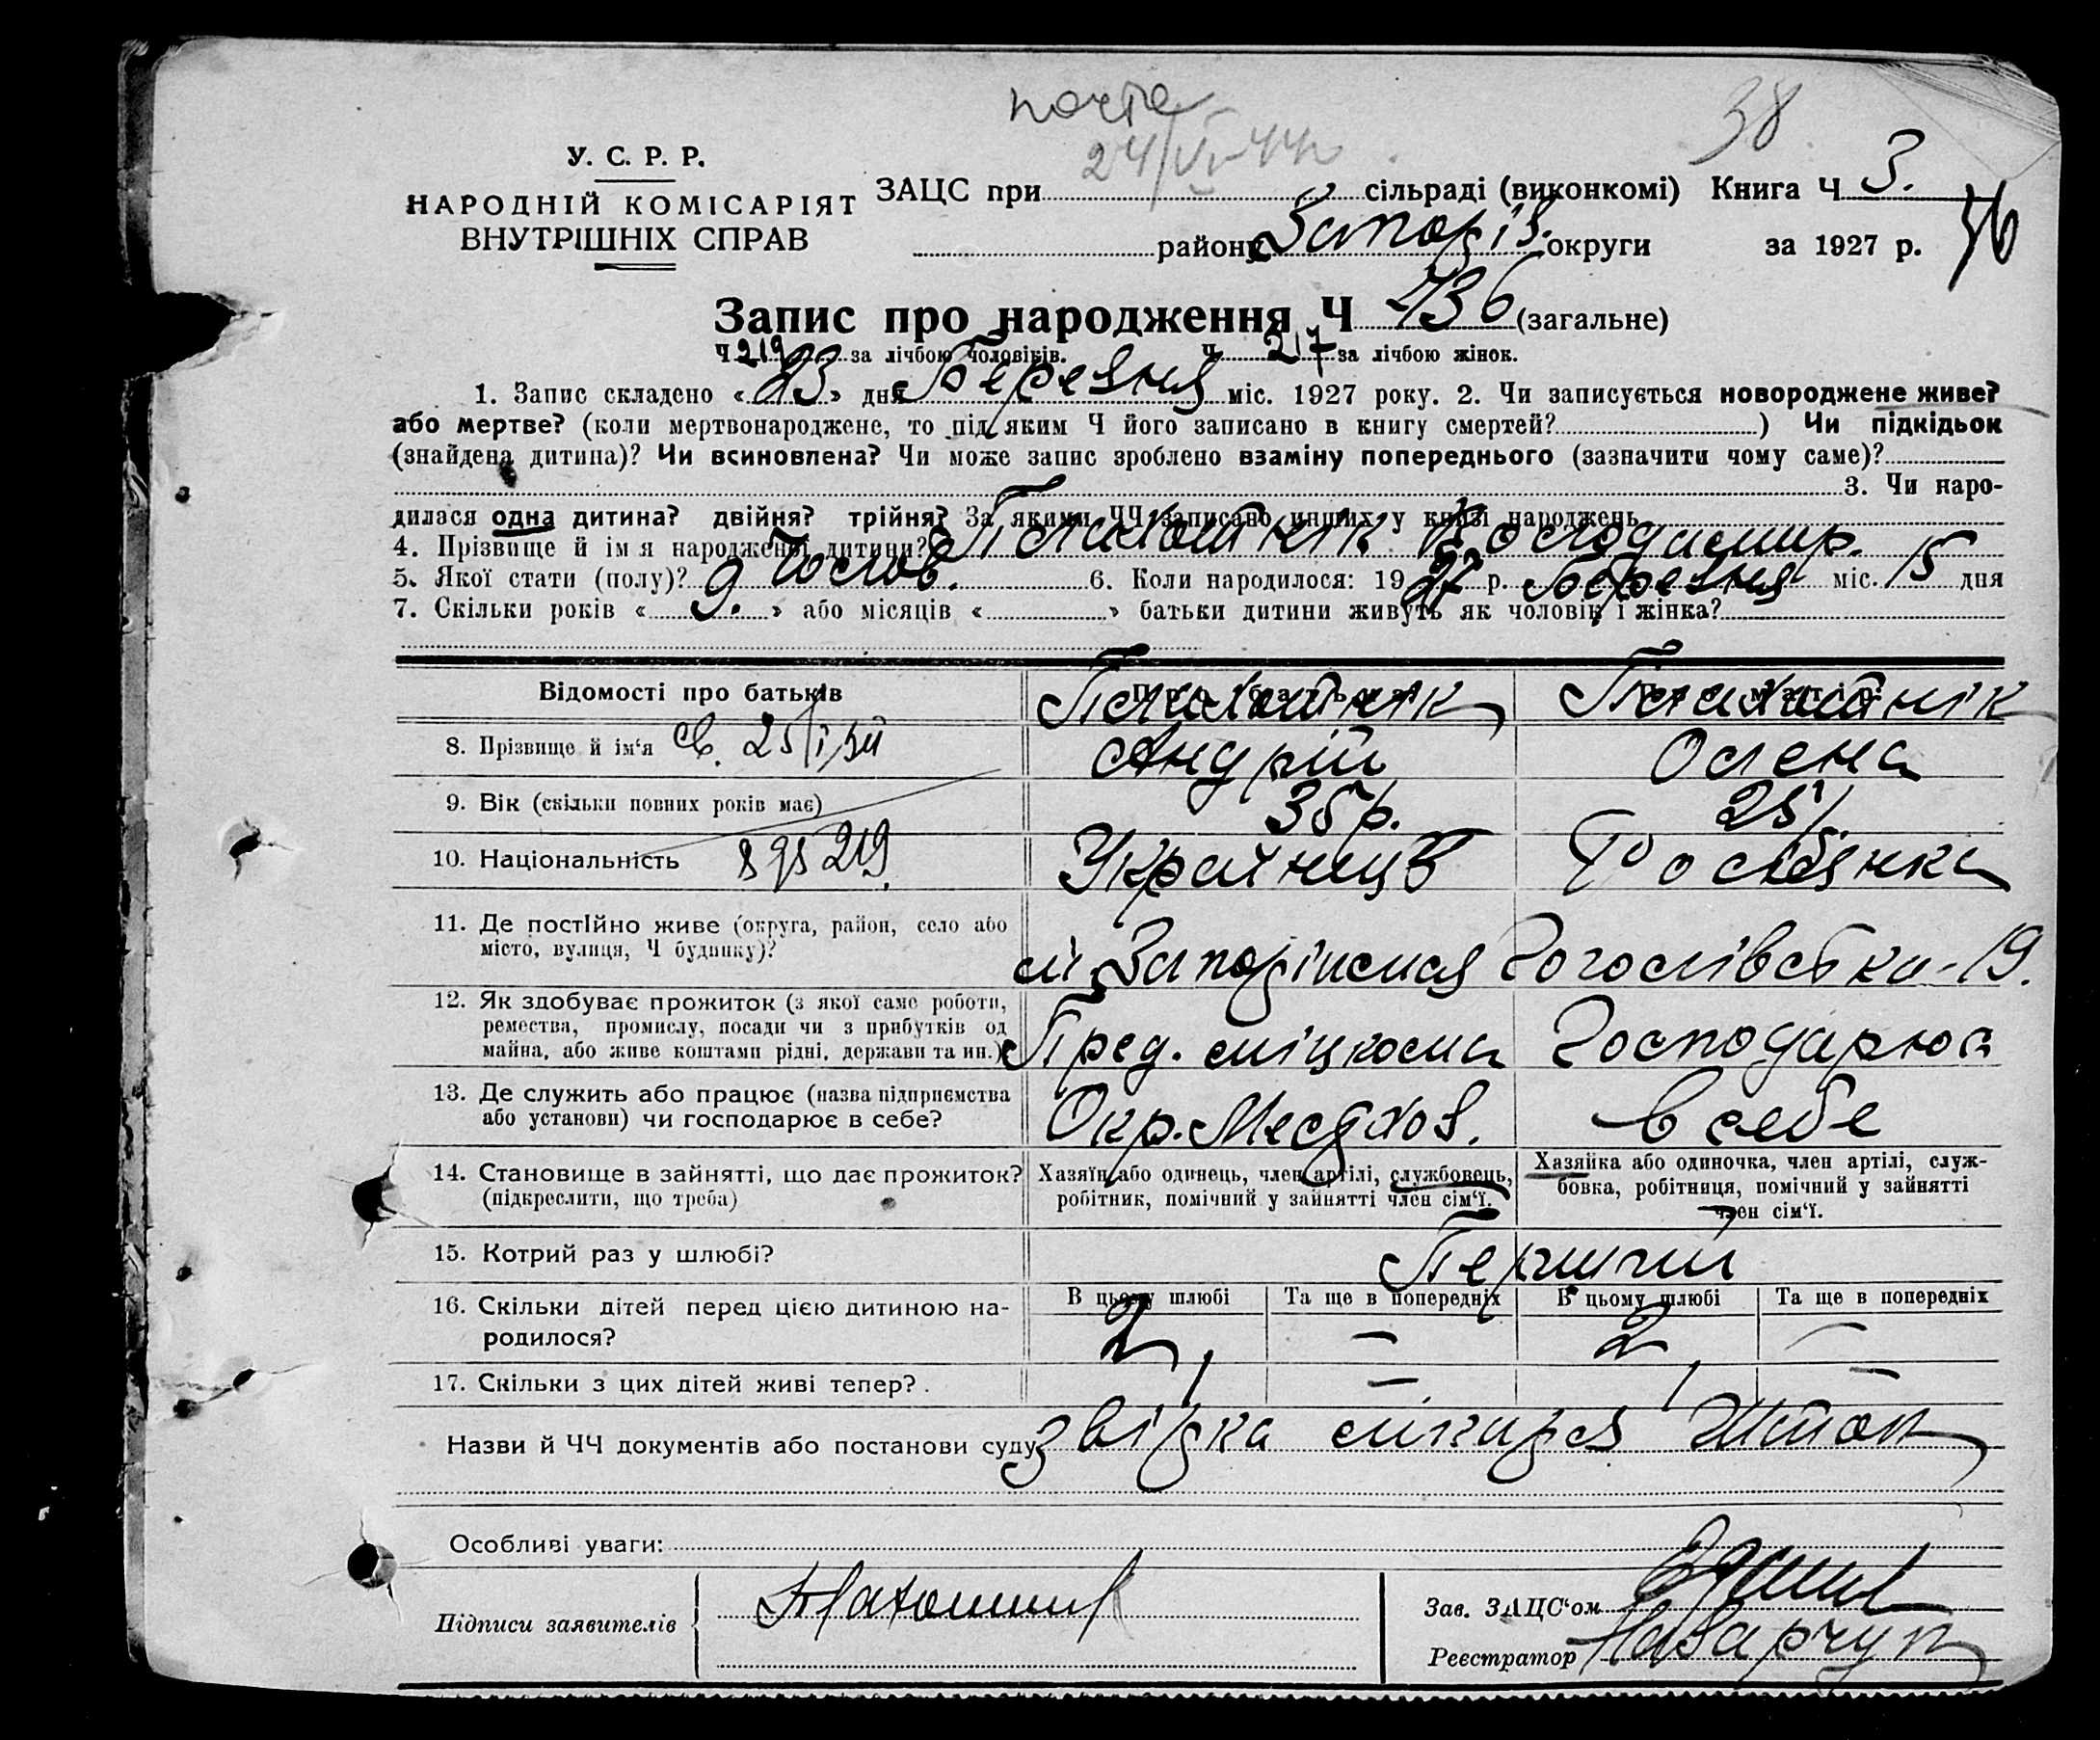 почта
24/VI-44р
38
У. С. Р. Р.
НАРОДНІЙ КОМІСАРІЯТ
ВНУТРІШНІХ СПРАВ
ЗАЦС при сільраді (виконкомі) Книга Ч 3.
району Запоріз. округи за 1927 р.
Запис про народження Ч 436 (загальне)
Ч 219 за лічбою чоловіків. Ч 217 за лічбою жінок.
1. Запис складено « 23 » дня Березня міс. 1927 року. 2. Чи записується новороджене живе?
або мертве? (коли мертвонароджене, то під яким Ч його записано в книгу смертей? ) Чи підкідьок
(знайдена дитина)? Чи всиновлена? Чи може запис зроблено взаміну попереднього (зазначити чому саме)?
3. Чи наро-
дилася одна дитина? двійня? трійня? За якими ЧЧ записано инших у книзі народжень
4. Прізвище й ім я народженої дитини? Володимир.
5. Якої стати (полу)? Чолов. 6. Коли народилося: 1927 р. Березня міс. 15 дня
7. Скільки років « 9. » або місяців « » батьки дитини живуть як чоловік і жінка?
Відомості про батьків
8. Прізвище й ім'я Андрій Олена
9. Вік (скільки повних років має) 35 р. 25
10. Національність Українець Росіянка
11. Де постійно живе (округа, район, село або
місто, вулиця, Ч будинку)? м. Запоріжжя Гоголівська-19.
12. Як здобуває прожиток (з якої саме роботи,
ремества, промислу, посади чи з прибутків од
майна, або живе коштами рідні, держави та ин.) Пред. міцкома Господарює
13. Де служить або працює (назва підприємства
або установи) чи господарює в себе? в себе
14. Становище в зайнятті, що дає прожиток?
(підкреслити, що треба)
Хазяїн або одинець, член артілі, службовець,
робітник, помічний у зайнятті член сім'ї.
Хазяйка або одиночка, член артілі, служ-
бовка, робітниця, помічний у зайнятті
член сім'ї.
15. Котрий раз у шлюбі? Перший
16. Скільки дітей перед цією дитиною на-
родилося?
В цьому шлюбі Та ще в попередніх В цьому шлюбі Та ще в попередніх
2 — 2 —
17. Скільки з цих дітей живі тепер? 1 — 1 —
Назви й ЧЧ документів або постанови суду звірка лікаря
Особливі уваги:
Підписи заявителів
Зав. ЗАЦС'ом
Реєстратор